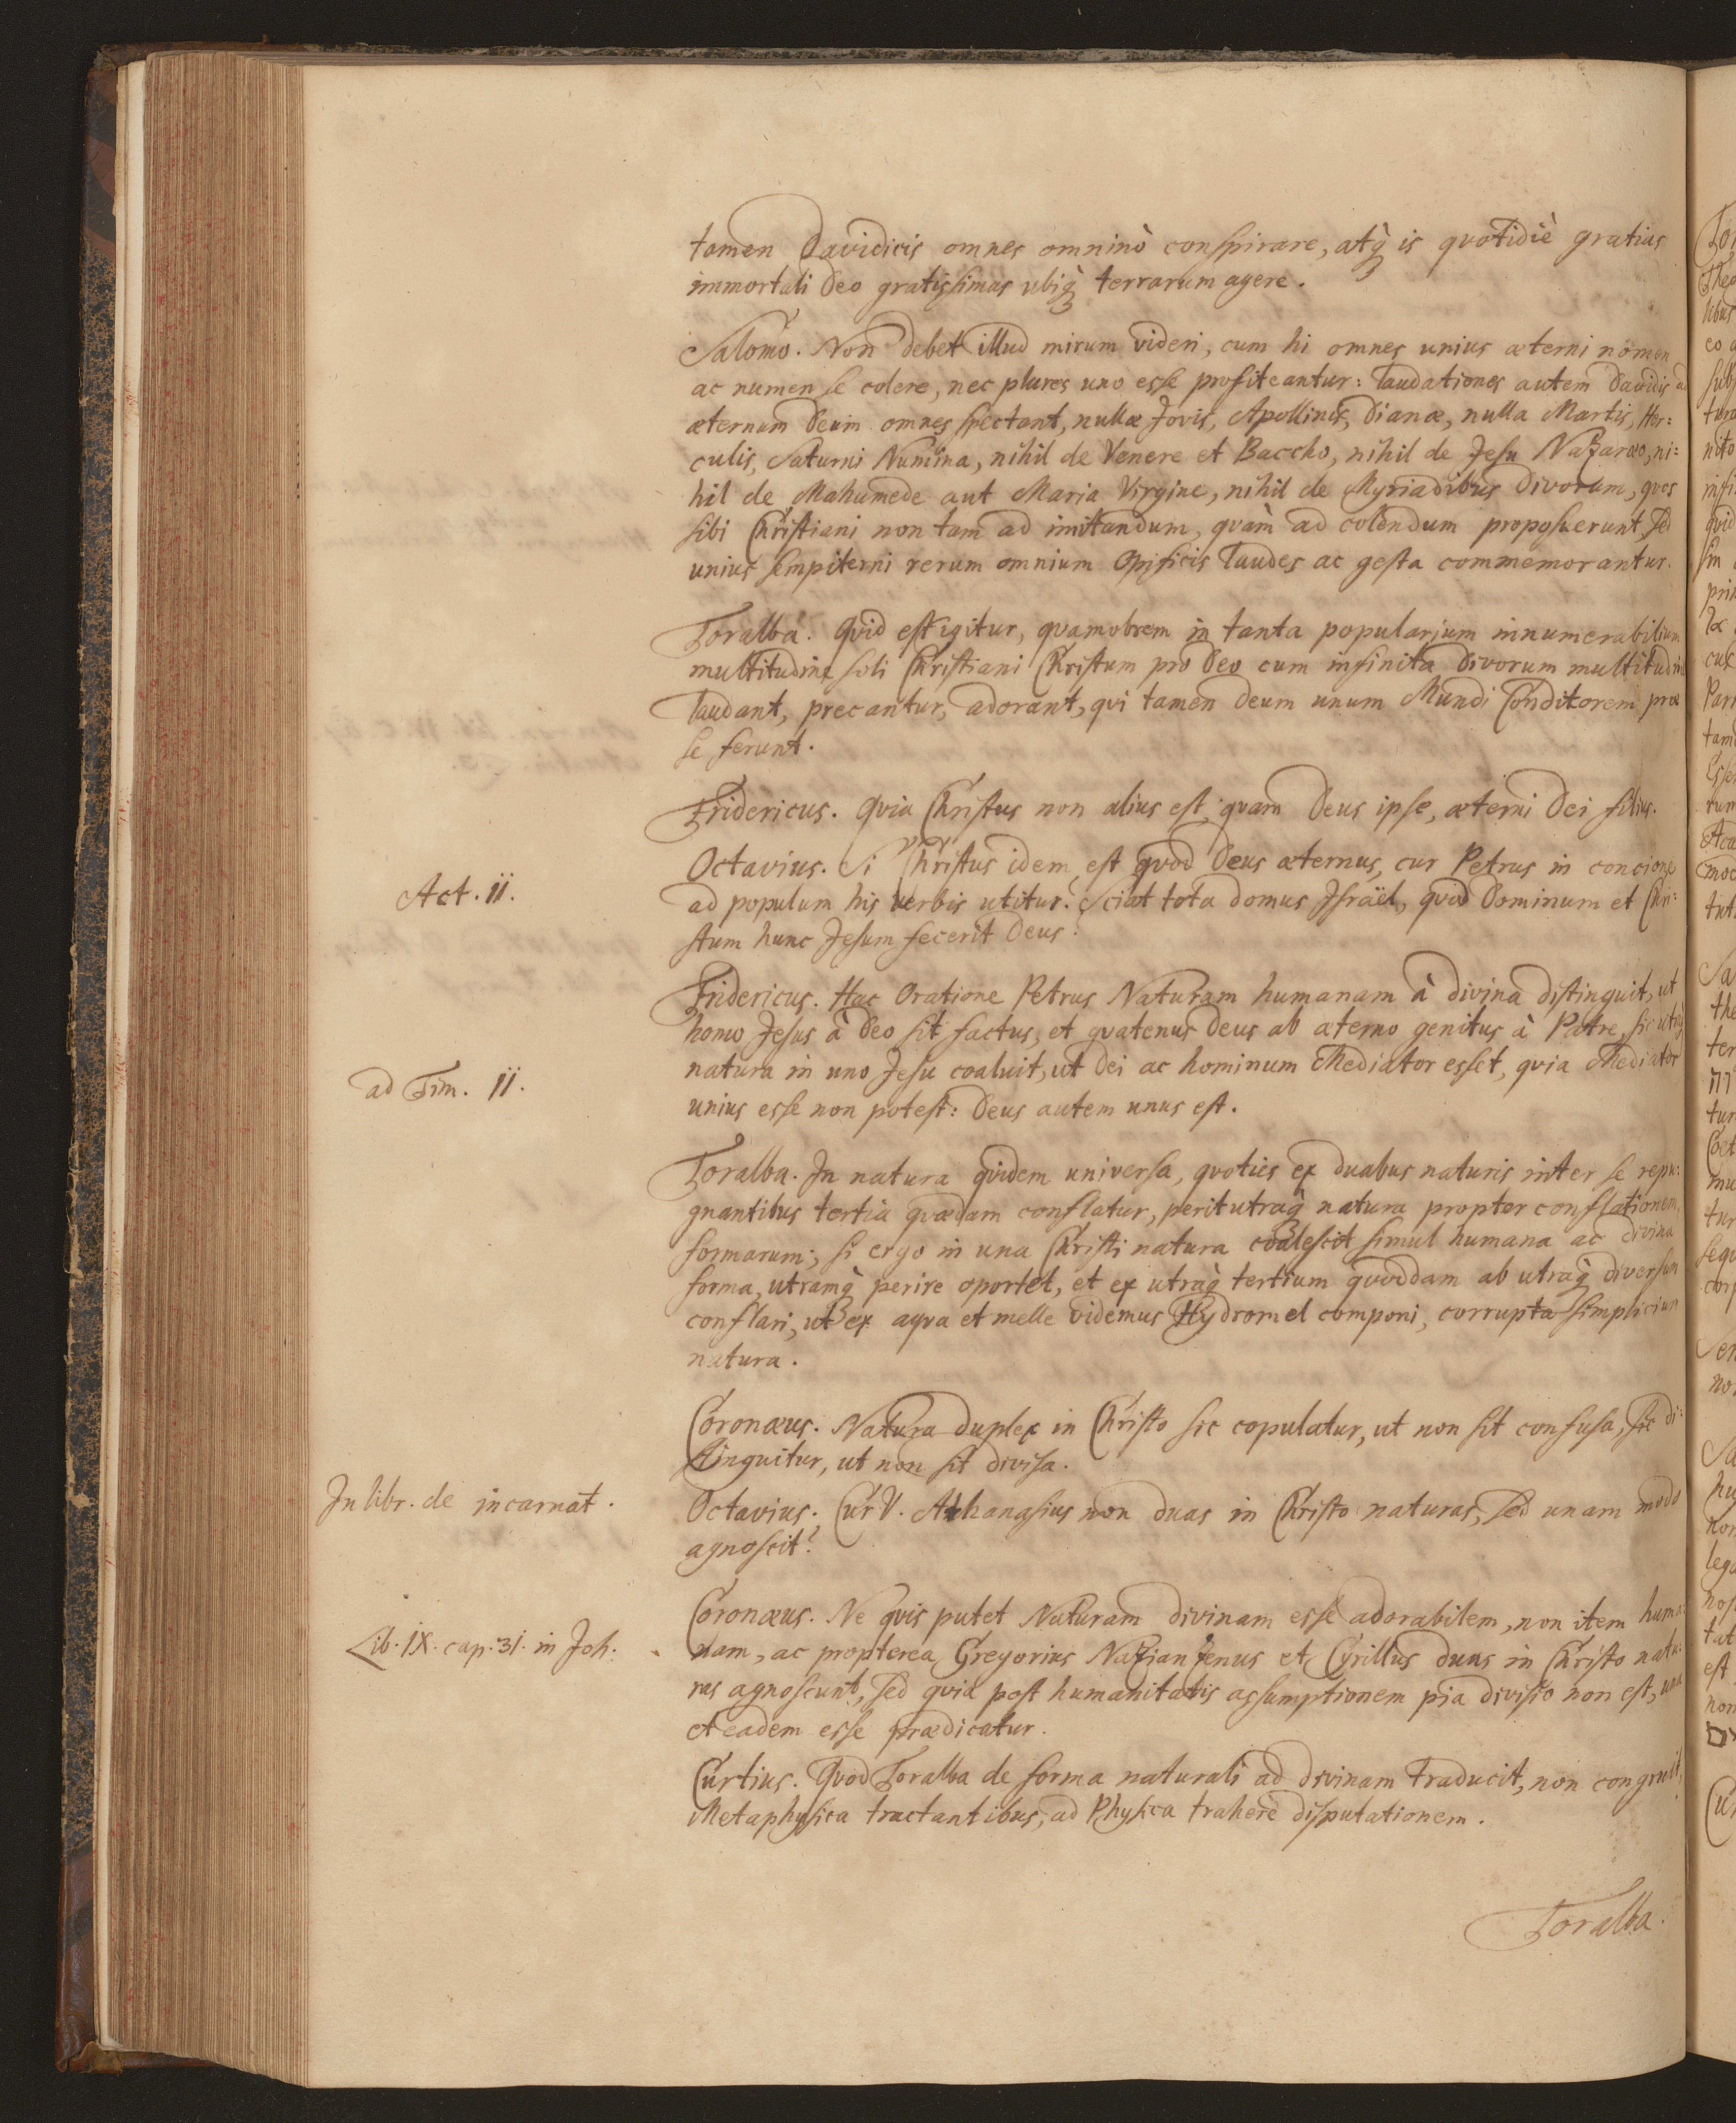 tamen Davidicis omnes omninò conspirare, atq̀ is quotidiè gratias
immortali Deo gratissimas ubiq̀ terrarum agere.
Salomo. Non debet illud mirum videri, cum hi omnes unius æterni nomen
ac numen se colere, nec plures uno esse profiteantur: laudationes autem Davidis ad
æternum Deum omnes spectant, nullæ Jovis, Apollinis, Dianæ, nulla Martis, Her:
culis, Saturni Numina, nihil de Venere et Baccho, nihil de Jesu Nazaræo, ni:
hil de Mahumede aut Maria Virgine, nihil de Myriadibus Divorum, quos
sibi Christiani non tam ad imitandum, quàm ad colendum proposuerunt, sed
unius sempiterni rerum omnium Opificis laudes ac gesta commemorantur.
Toralba. Quid est igitur, quamobrem in tanta popularium innumerabilium
multitudine soli Christiani Christum pro Deo cum infinita Divorum multitudine
laudant, precantur, adorant, qui tamen Deum unum Mundi Conditorem præ
se ferunt.
Fridericus. Quia Christus non alius est, quam Deus ipse, æterni Dei filius.
Octavius. Si Christus idem est quod Deus æternus, cur Petrus in concione
Act. II.
ad populum his verbis utitur? Sciat tota domus Israël, quod Dominum et Chri:
stum hunc Jesum fecerit Deus?
Fridericus. Hac Oratione Petrus Naturam humanam à divina distinguit, ut
homo Jesus à Deo sit factus, et quatenus Deus ab æterno genitus à Patre, sic utraq̀
natura in uno Jesu coaluit, ut Dei ac hominum Mediator esset, quia Mediator
ad Tim. II.
unius esse non potest: Deus autem unus est.
Toralba. In natura quidem universa, quoties ex duabus naturis inter se repu:
gnantibus tertia quædam conflatur, perit utraq̀ natura propter conflationem
formarum; si ergo in una Christi natura coalescit simul humana ac divina
forma, utramq̀ perire oportet, et ex utraq̀ tertium quoddam ab utraq̀ diversum
conflari, ut ex aqua et melle videmus Hydromel componi, corrupta simplicium
natura.
Coronæus. Natura duplex in Christo sic copulatur, ut non sit confusa, sic di:
stinguitur, ut non sit divisa.
In libr. de incarnat.
Octavius. Cur V. Athanasius non duas in Christo naturas, sed unam modo
agnoscit?
Coronæus. Ne quis putet Naturam divinam esse adorabilem, non item huma:
Lib. IX. cap. 31. in Joh:
nam, ac propterea Gregorius Nazianzenus et Cyrillus duas in Christo natu:
ras agnoscunt, sed quia post humanitatis assumptionem pia divisio non est, una
et eadem esse prædicatur.
Curtius. Quod Toralba de forma naturali ad divinam traducit, non congruit,
Metaphysica tractantibus, ad Physica trahere disputationem.
Toralba.